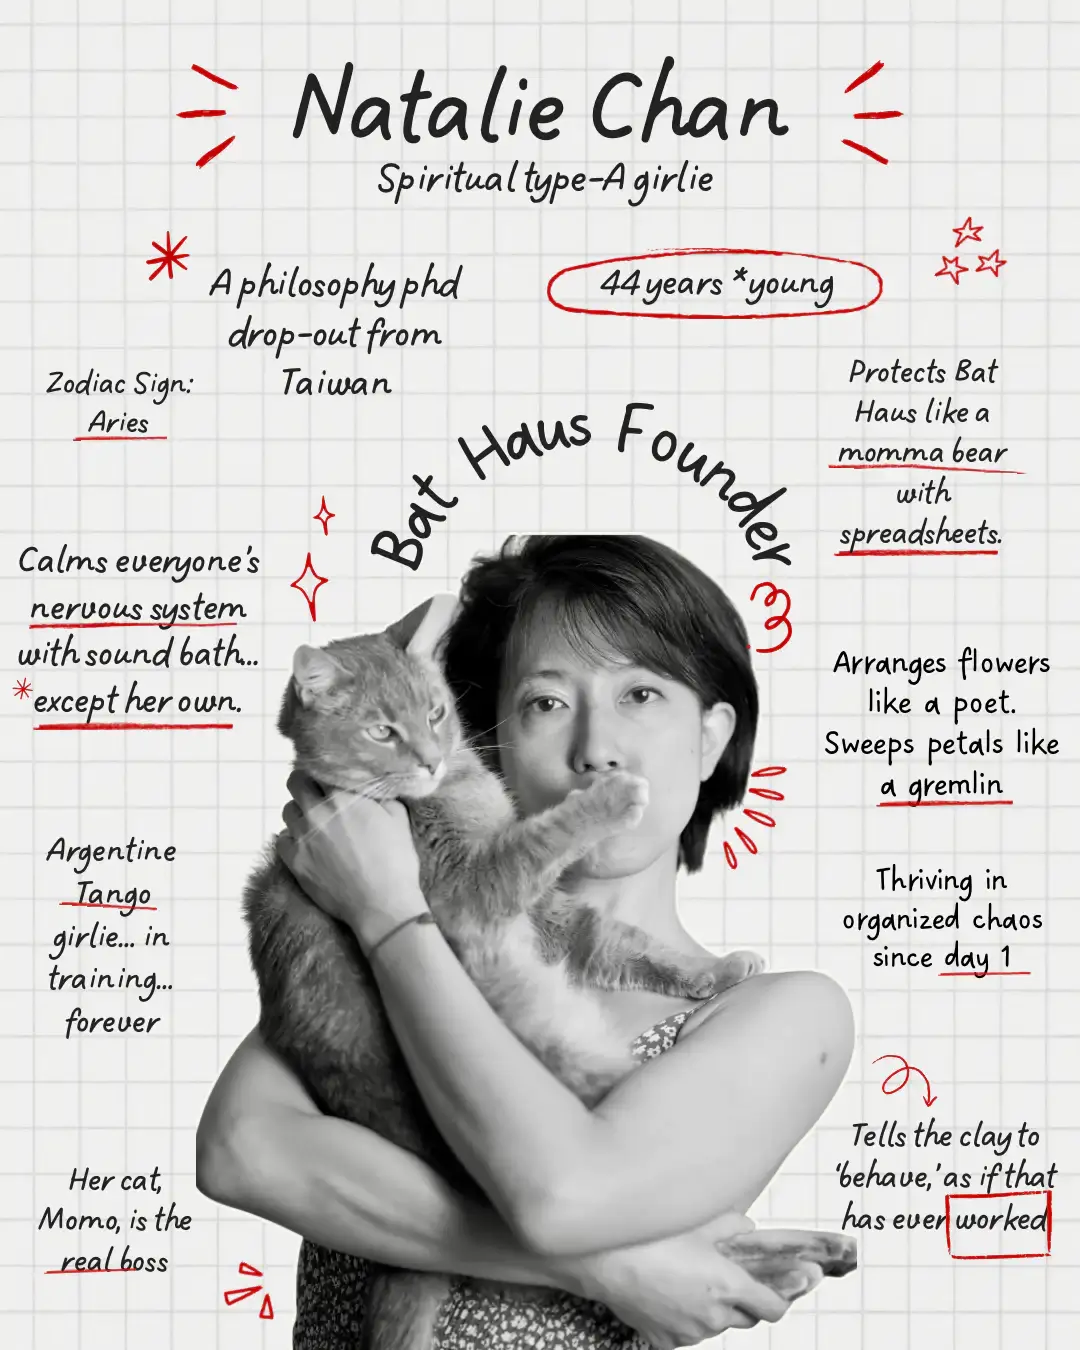 Natalie Chan
Spiritual type-A girlie
A philosophy phd
drop-out from
Taiwan
44 years *young
Zodiac Sign:
Aries
Protects Bat
Haus like a
momma bear
with
spreadsheets.
Bat Haus Founder
Calms everyone's
nervous system
with sound bath...
*except her own.
Arranges flowers
like a poet.
Sweeps petals like
a gremlin
Argentine
Tango
girlie... in
training...
forever
Thriving in
organized chaos
since day 1
Tells the clay to
'behave,' as if that
has ever worked
Her cat,
Momo, is the
real boss